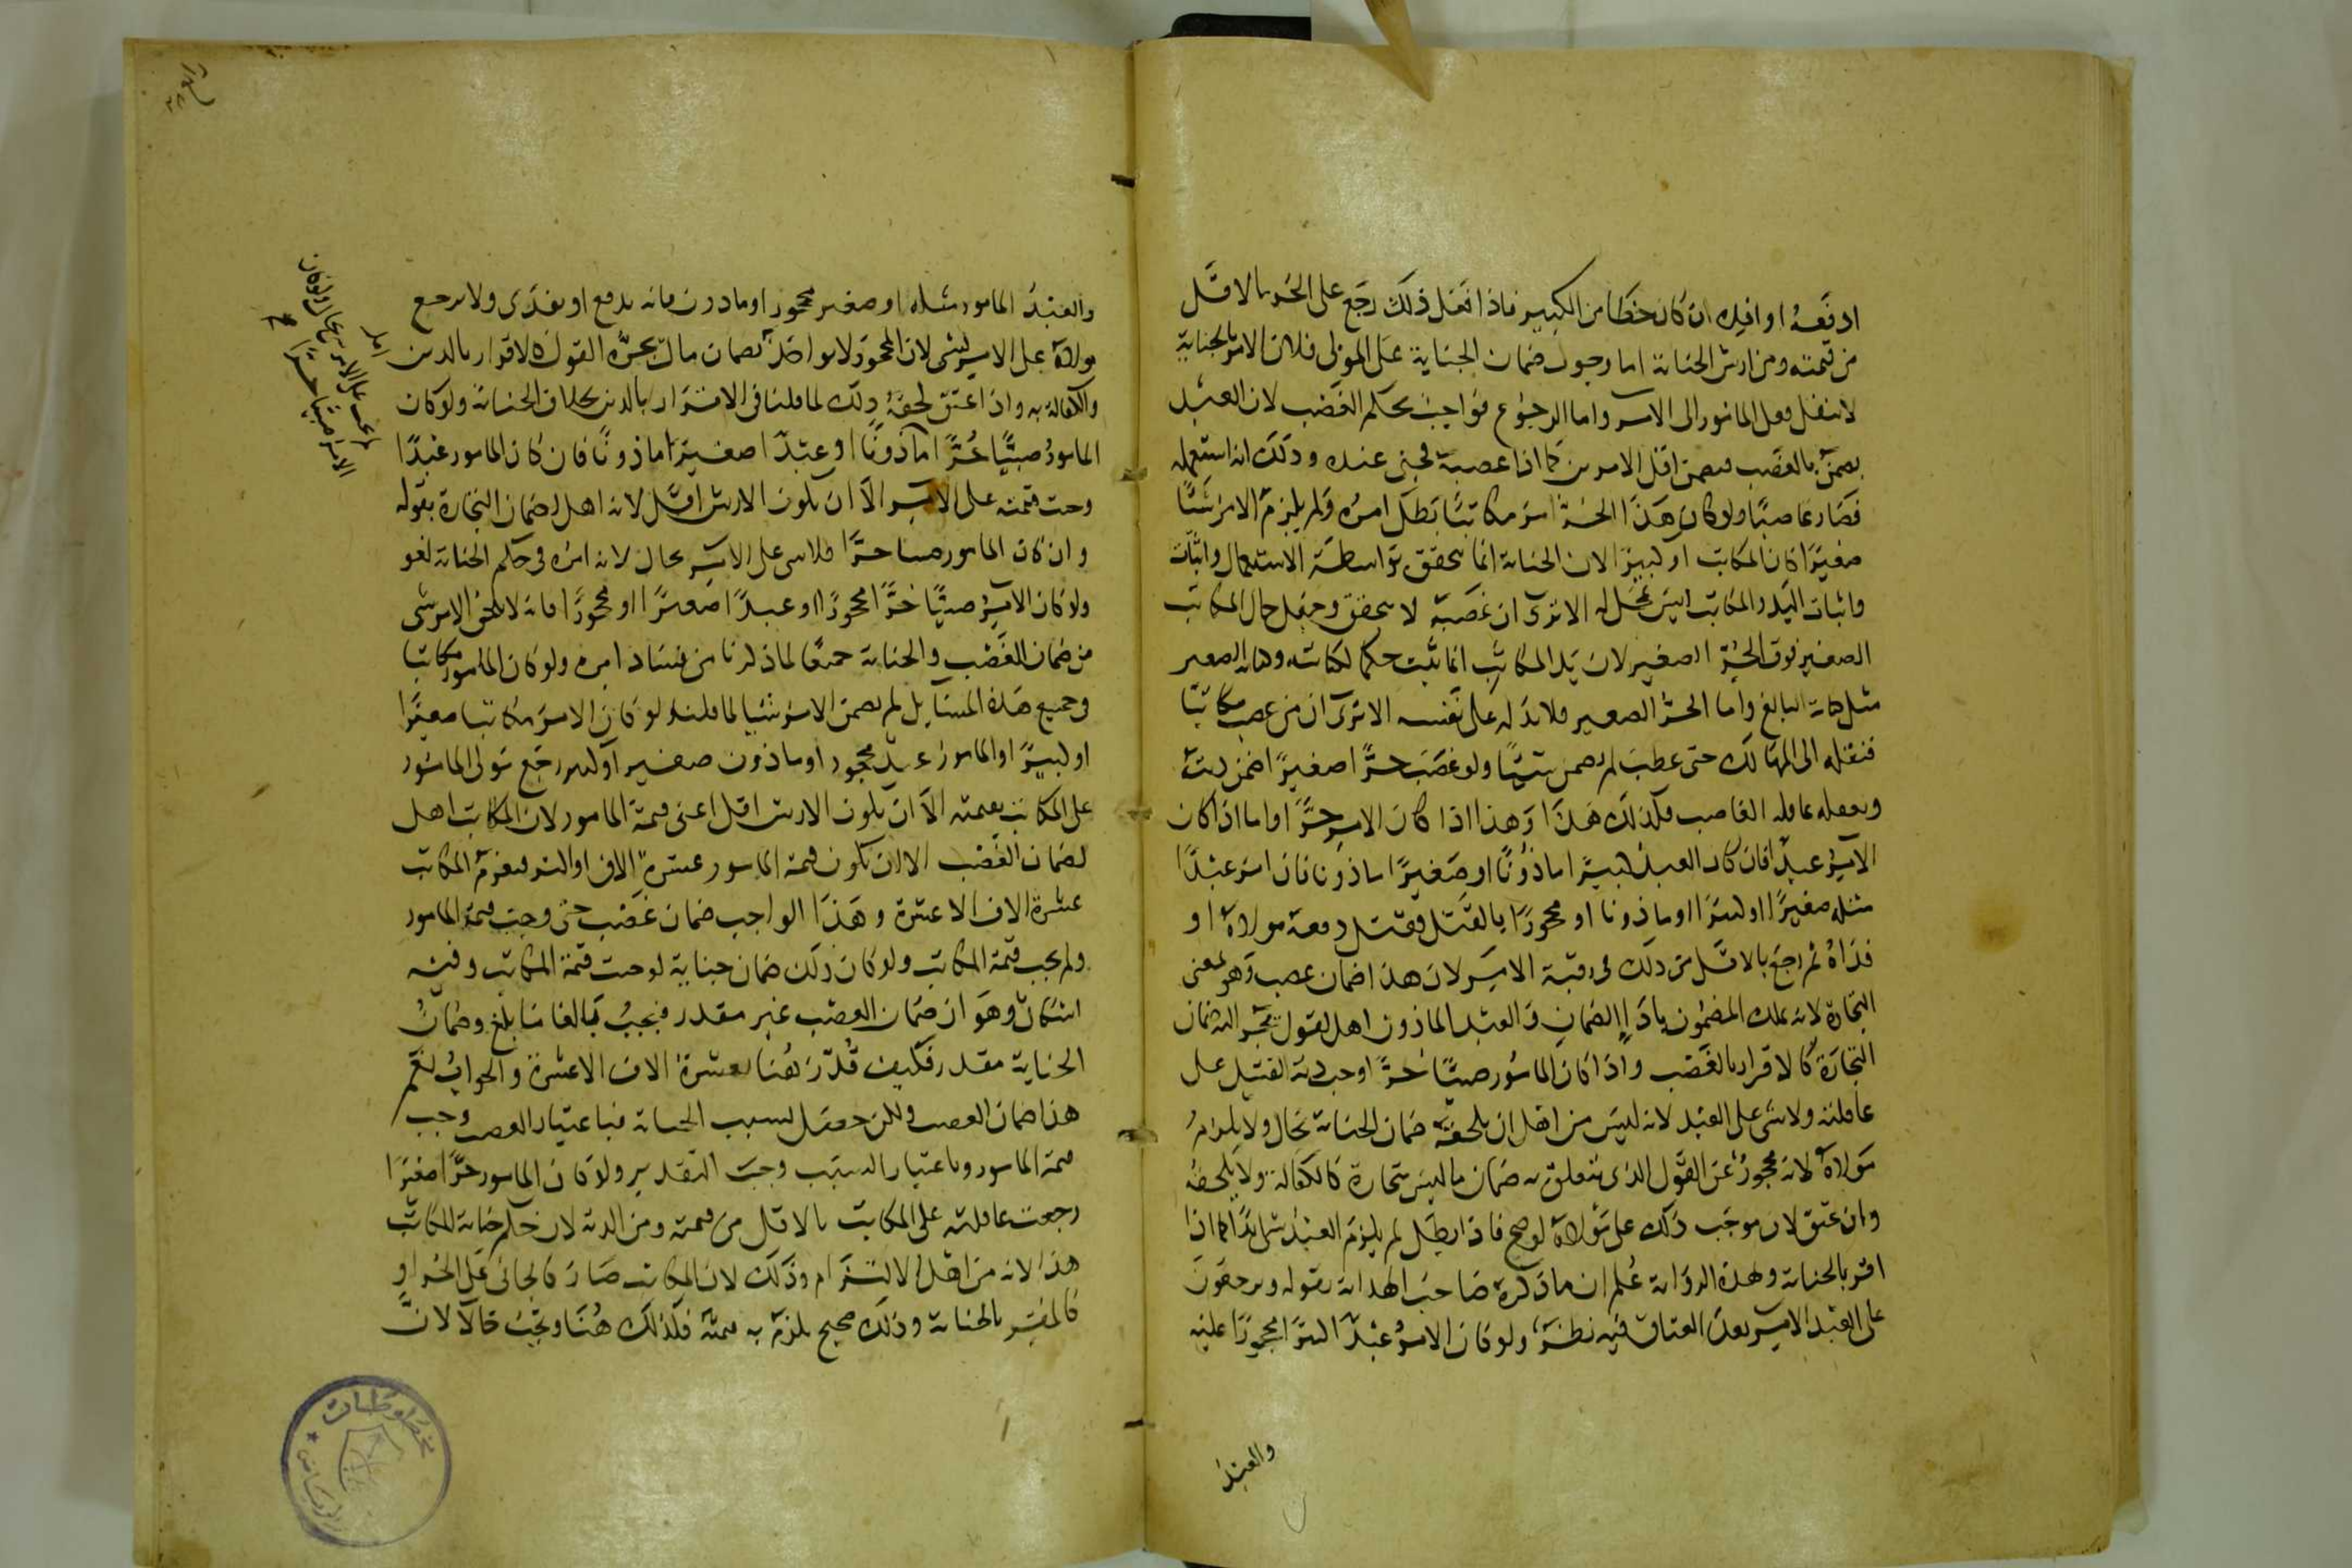 ادفعه او افده ان كان خطا من الكبير فاذا فعل ذلك رجع على الحر بالاقل
من قيمته ومن ارش الجناية اما وجوب ضمان الجناية على المولى فلان الامر بالجناية
لا ينقل فعل المامور الى الامر واما الرجوع فواجب بحكم الغصب لان العبد
يضمن بالغصب فيضمن اقل الامرين كما اذا غصبه فجنى عنده وذلك انه استعمله
فصار غاصبا ولو كان هذا الحر امر مكاتبا بطل امره ولم يلزم الامر شيئا
صغيرا كان المكاتب او كبيرا لان الجناية انما تتحقق بواسطة الاستعمال واثبات
واثبات اليد والمكاتب ليس بمحل له الا ترى ان غصبه لا يتحقق وجعل حال المكاتب
الصغير فوق الحر الصغير لان يد المكاتب انما تثبت حكما لكتابته وكتابة الصغير
مثل كتابة البالغ واما الحر الصغير فلا يد له على نفسه الا ترى ان من غصب مكاتبا
فنقله الى المهالك حتى عطب لم يضمن شيئا ولو غصب حرا صغيرا ضمن ديته
وتعقله عاقلة الغاصب فكذلك هذا وهذا اذا كان الامر حرا واما اذا كان
الامر عبدا فان كان العبد كبيرا ماذونا او صغيرا ماذونا فان امر عبدا
مثله صغيرا او كبيرا او ماذونا او محجورا بالقتل فقتل دفعه مولاه او
فداه ثم رجع بالاقل من ذلك في رقبة الامر لان هذا ضمان غصب وهو بمعنى
التجارة لانه يملك المضمون باداء الضمان والعبد الماذون اهل لقول يجر اليه ضمان
التجارة كالاقرار بالغصب واذا كان المامور صبيا حرا وجب دية القتيل على
عاقلته ولا شي على العبد لانه ليس من اهل ان يلحقه ضمان الجناية بحال ولا يلزم
مولاه لانه محجور عن القول الذي يتعلق به ضمان ما ليس بتجارة كالكفالة ولا يلحقه
وان عتق لان موجب ذلك على مولاه لو صح فاذا بطل لم يلزم العبد شي ابدا كما اذا
اقر بالجناية وبهذه الرواية علم ان ما ذكره صاحب الهداية بقوله ويرجعون
على العبد الامر بعد العتاق فيه نظر، ولو كان الامر عبدا كبيرا محجورا عليه
والعبد
والعبد المامور مثله او صغير محجور او ماذون فانه يدفع او يفدى ولا يرجع
مولاه على الامر بشي لان المحجور لا يؤاخذ بضمان مال يجره القول كالاقرار بالدين
والكفالة به واذا عتق لحقه ذلك لما قلنا في الاقرار بالدين بخلاف الجناية ولو كان
المامور صبيا حرا ماذونا او عبدا صغيرا ماذونا فان كان المامور عبدا
وجبت قيمته على الامر الا ان يكون الارش اقل لانه اهل لضمان التجارة بقوله
وان كان المامور صبيا حرا فلا شي على الامر بحال لانه امره في حكم الجناية لغو
ولو كان الامر صبيا حرا محجورا او عبدا صغيرا او محجورا فانه لا يلحق الامر شي
من ضمان الغصب والجناية جميعا لما ذكرنا من فساد امره ولو كان المامور مكاتبا
وجميع هذه المسايل لم يضمن الامر شيئا لما قلنا ولو كان الامر مكاتبا صغيرا
او كبيرا والمامور عبد محجور او ماذون صغير او كبير رجع مولى المامور
على المكاتب بقيمته الا ان يكون الارش اقل اعني قيمة المامور لان المكاتب اهل
لضمان الغصب الا ان تكون قيمة المامور عشرة الاف او اكثر فيغرم المكاتب
عشرة الاف الا عشرة وهذا الواجب ضمان غصب حتى وجبت قيمة المامور
ولم يجب قيمة المكاتب ولو كان ذلك ضمان جناية لوجبت قيمة المكاتب وفيه
اشكال وهو ان ضمان الغصب غير مقدر فيجب بالغا ما بلغ وضمان
الجناية مقدر فكيف قدر هنا بعشرة الاف الا عشرة والجواب نعم
هذا ضمان الغصب ولكن جعل بسبب الجناية فباعتبار الغصب وجب
قيمة المامور وباعتبار السبب وجب التقدير ولو كان المامور حرا صغيرا
رجعت عاقلته على المكاتب بالاقل من قيمته ومن الدية لان حكم جناية المكاتب
هذا لانه من اهل الالتزام وذلك لان المكاتب صار كالجاني على الحر او
كالمقر بالجناية وذلك صحيح يلزمه به قيمته فكذلك هنا وتجب حالا لان
مخطوطات